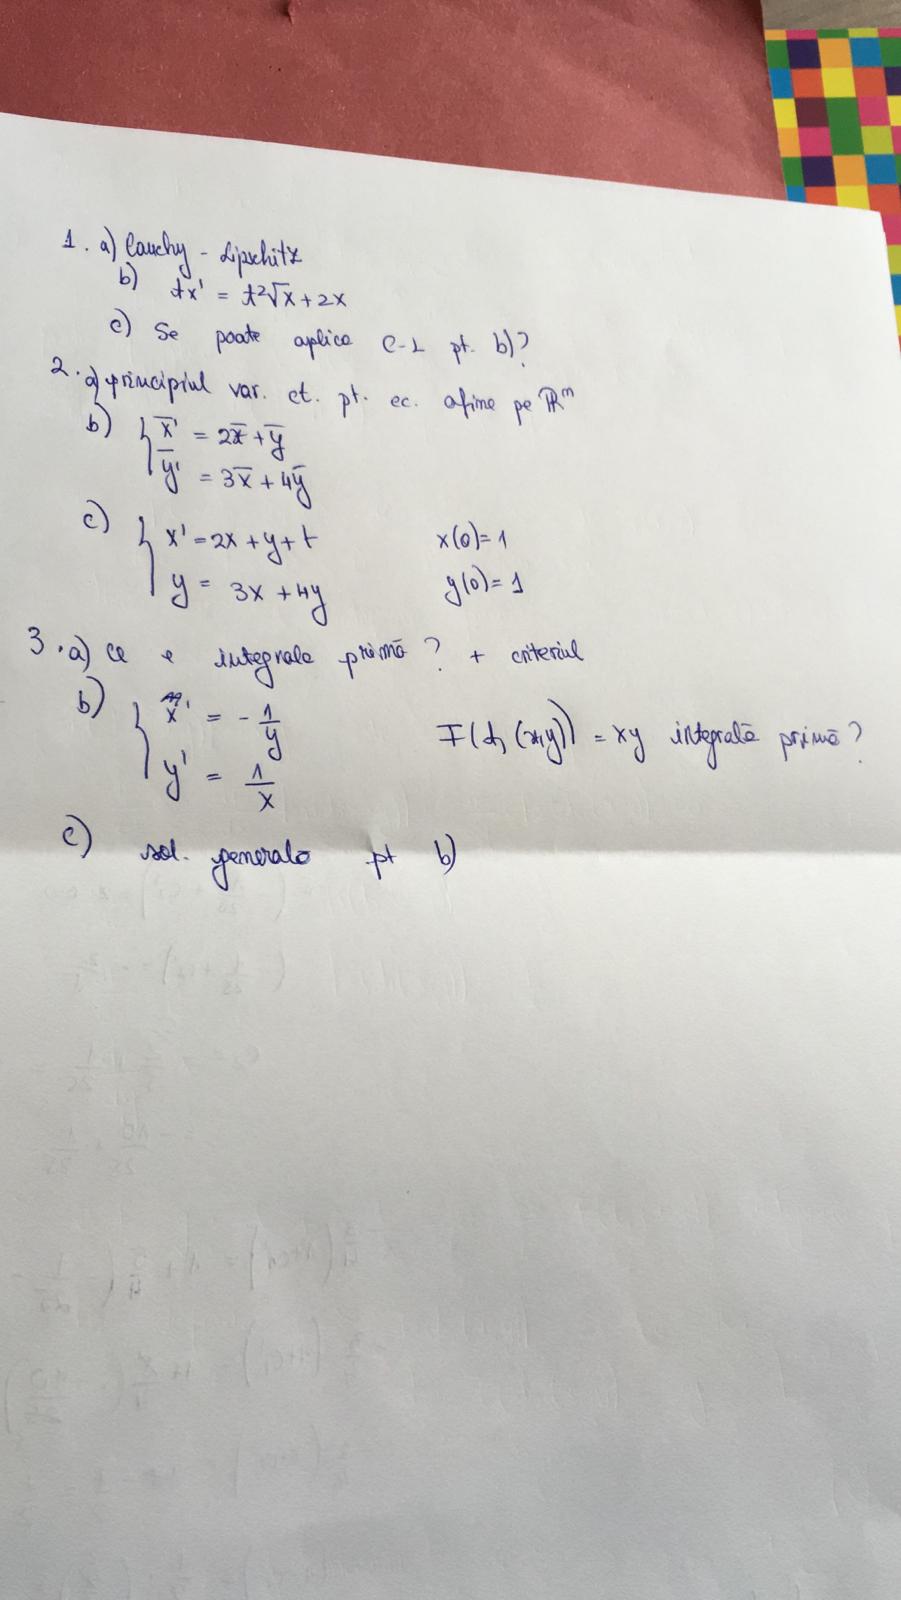 1. a) Cauchy - Lipschitz
b) tx' = t²√x + 2x
c) Se poate aplica C-L pt. b)?
2. a) principiul var. ct. pt. ec. afine pe ℝⁿ
b) { x̅' = 2x̅ + y̅
y̅' = 3x̅ + 4y̅
c) { x' = 2x + y + t x(0) = 1
y = 3x + 4y y(0) = 1
3. a) Ce e integrala primă? + criteriul
b) { x' = - 1/y
y' = 1/x F(t, (x,y)) = xy integrală primă?
c) sol. generală pt b)